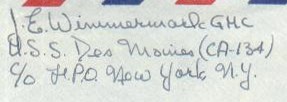 J. E. Wimmermark GMC
U.S.S. Des Moines (CA-134)
c/o F.P.O. New York N.Y.